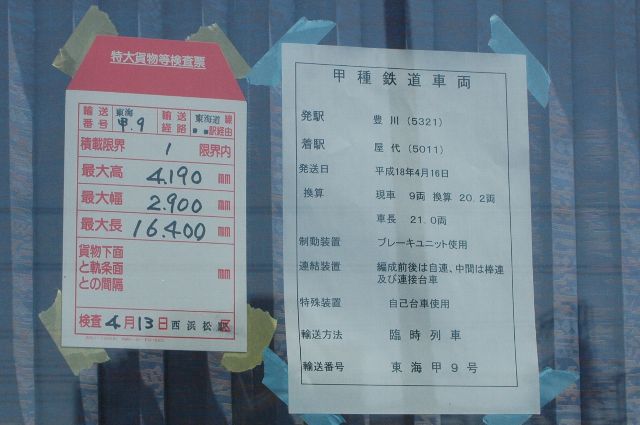 特大貨物等検査票
輸送番号 東海甲.9 輸送経路 東海道線 駅経由
積載限界 1 限界内
最大高 4.190 mm
最大幅 2.900 mm
最大長 16.400 mm
貨物下面と軌条面との間隔 mm
検査 4月13日 西浜松駅
甲種鉄道車両
発駅 豊川(5321)
着駅 屋代(5011)
発送日 平成18年4月16日
換算 現車 9両 換算 20.2両
車長 21.0両
制動装置 ブレーキユニット使用
連結装置 編成前後は自連、中間は棒連
及び連接台車
特殊装置 自己台車使用
輸送方法 臨時列車
輸送番号 東海甲9号